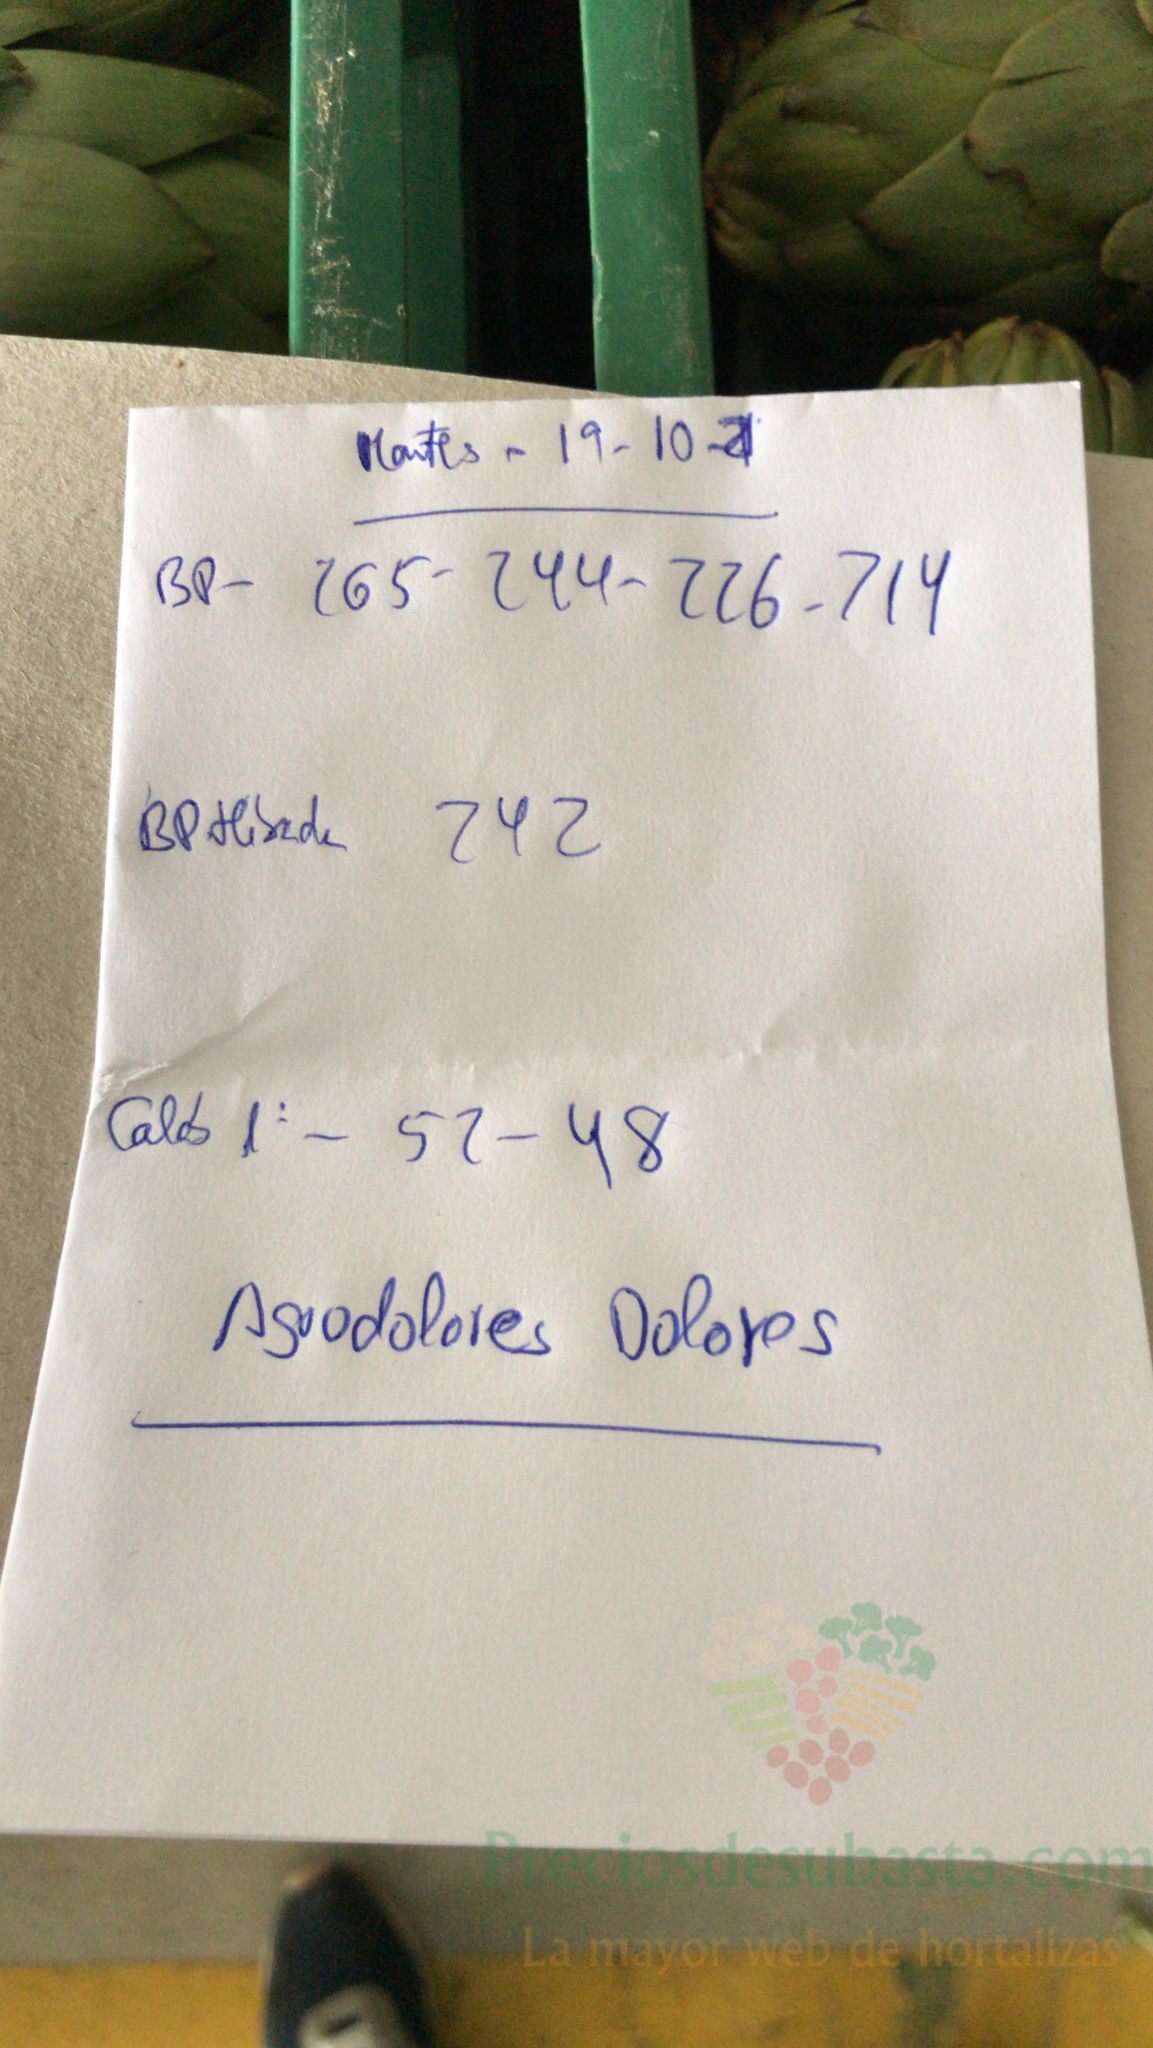 Martes - 19-10-21
BP- 265-244-226-214
BP Alisada 242
Calós 1ª - 52-48
Agrodolores Dolores
Preciosdesubasta.com
La mayor web de hortalizas